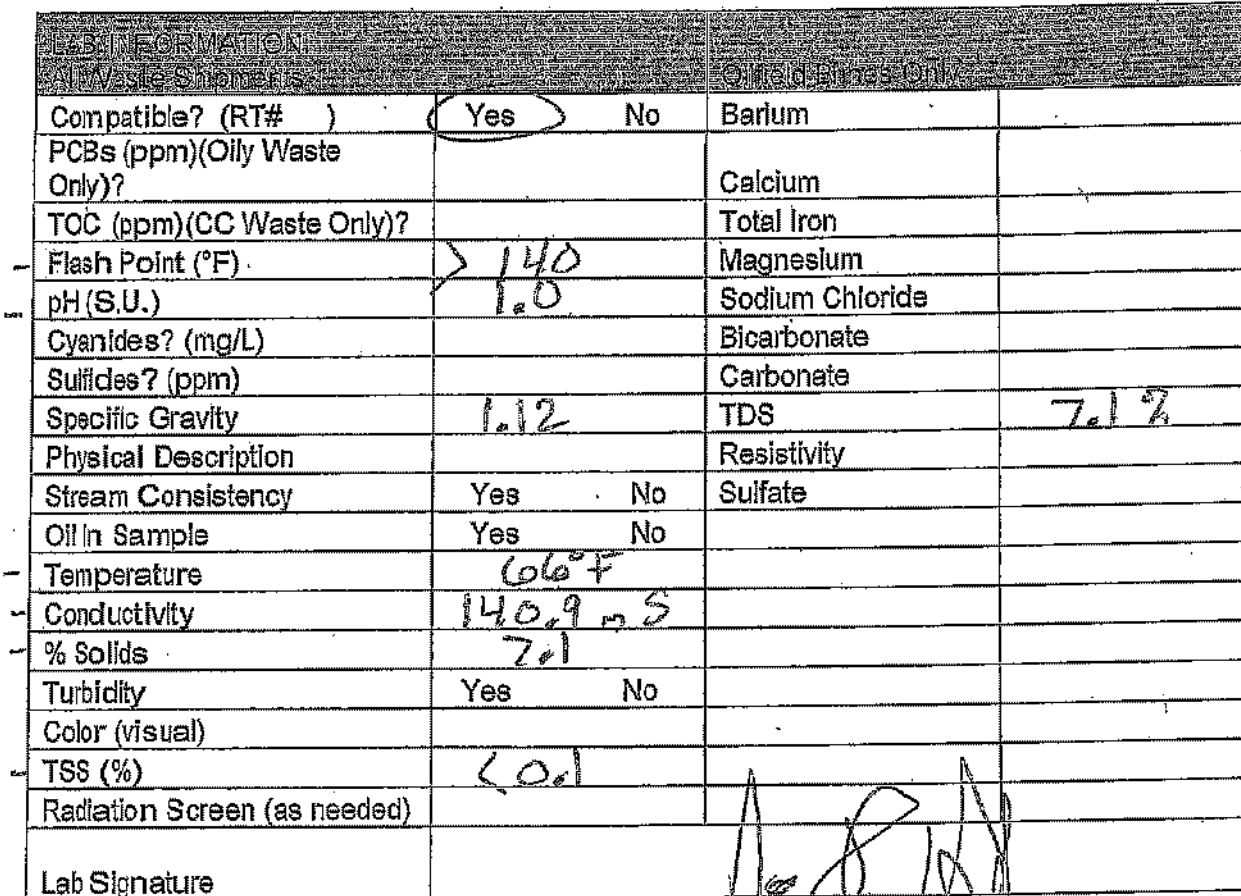 LAB INFORMATION:
All Waste Shipments Oilfield Brines Only
Compatible? (RT# ) Yes No Barium
PCBs (ppm)(Oily Waste
Only)? Calcium
TOC (ppm)(CC Waste Only)? Total Iron
Flash Point (°F) > 140 Magnesium
pH (S.U.) 1.0 Sodium Chloride
Cyanides? (mg/L) Bicarbonate
Sulfides? (ppm) Carbonate
Specific Gravity 1.12 TDS 7.1 %
Physical Description Resistivity
Stream Consistency Yes No Sulfate
Oil In Sample Yes No
Temperature 66°F
Conductivity 140.9 mS
% Solids 7.1
Turbidity Yes No
Color (visual)
TSS (%) <0.1
Radiation Screen (as needed)
Lab Signature